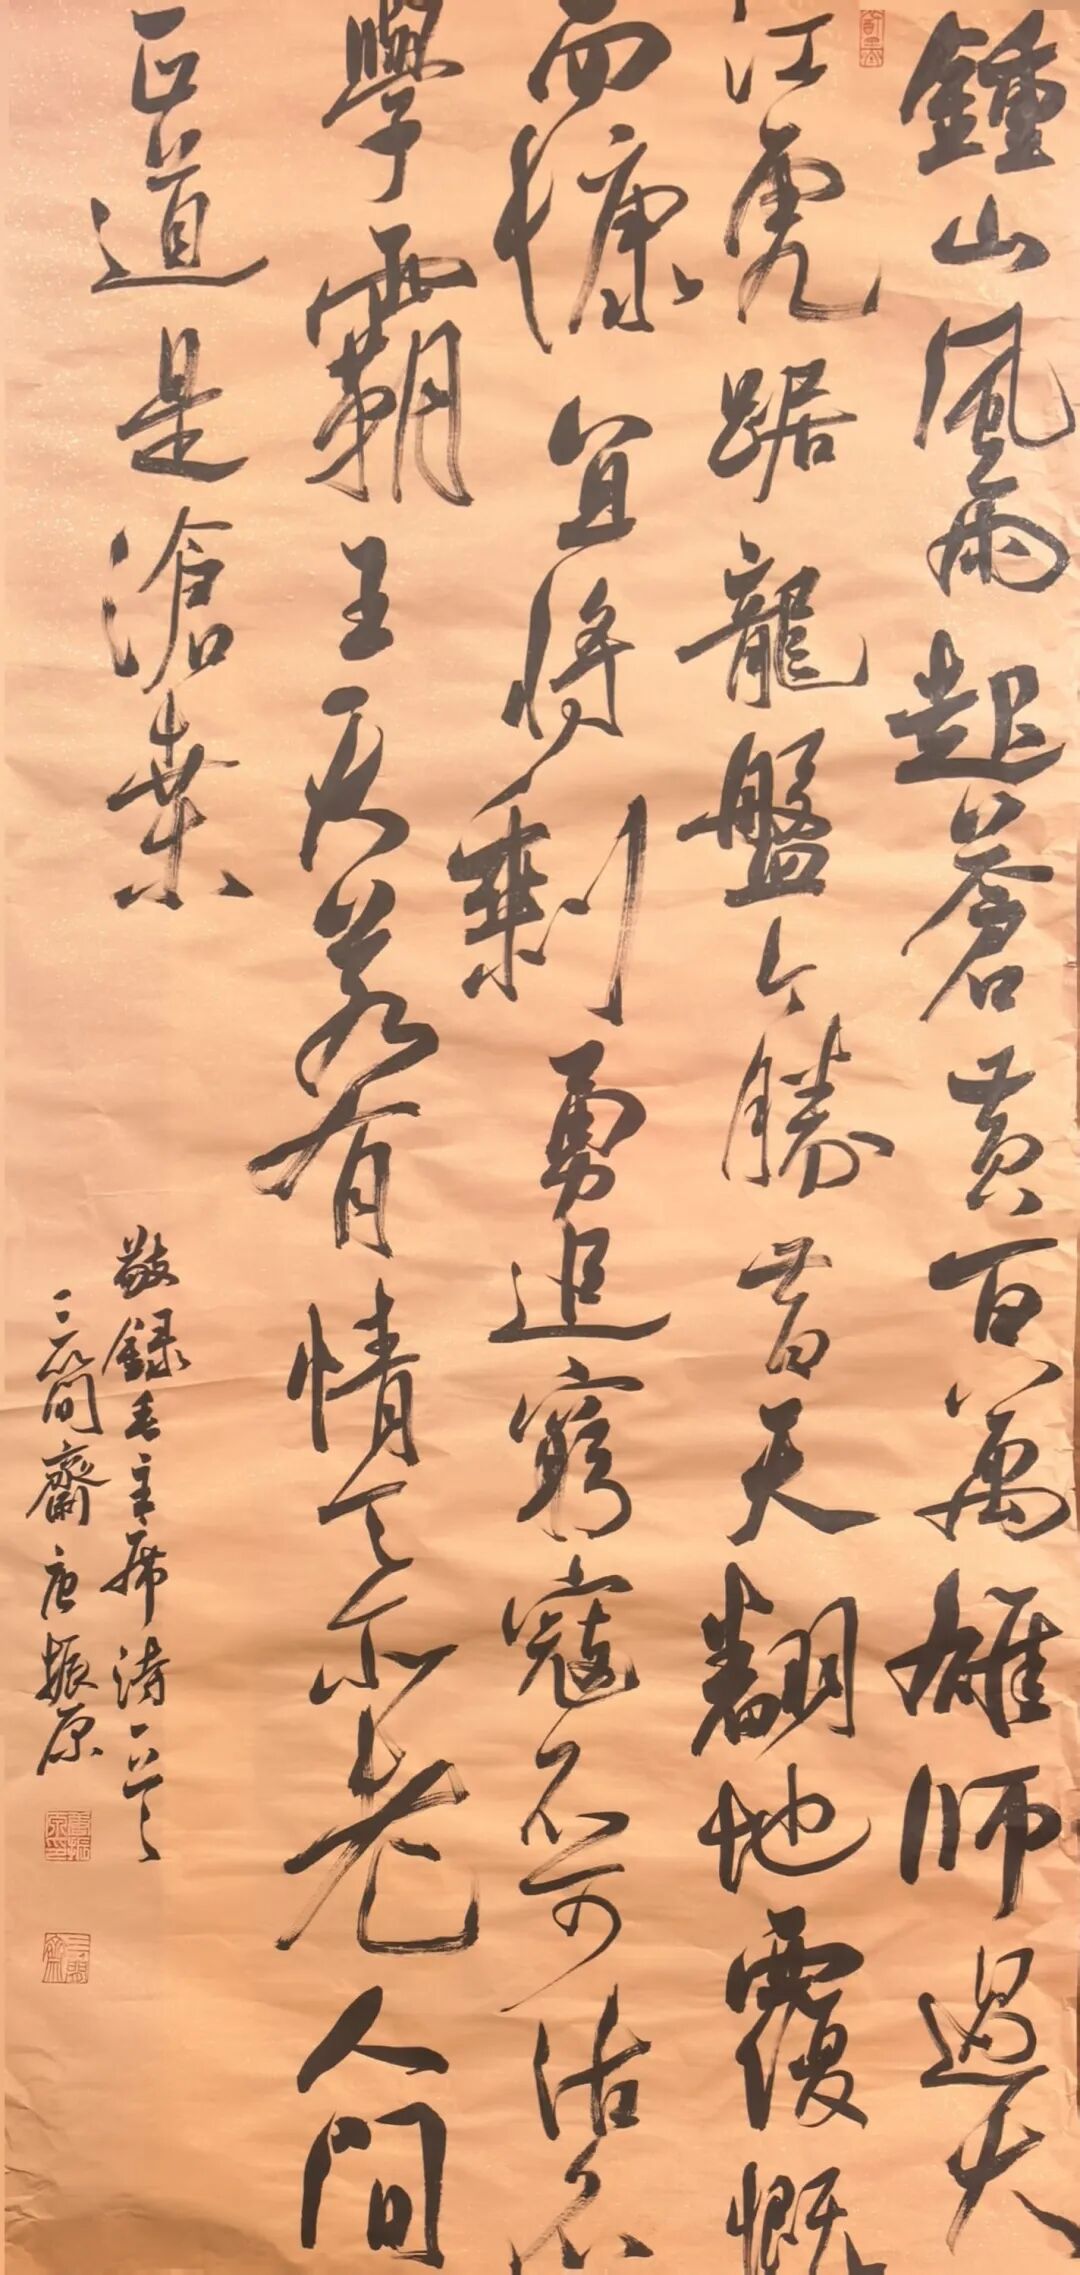 鍾山風雨起蒼黃百萬雄師過大
江虎踞龍盤今勝昔天翻地覆慨
而慷宜將剩勇追窮寇不可沽名
學霸王天若有情天亦老人間
正道是滄桑
敬録毛主席詩一首
三簡齋唐振原